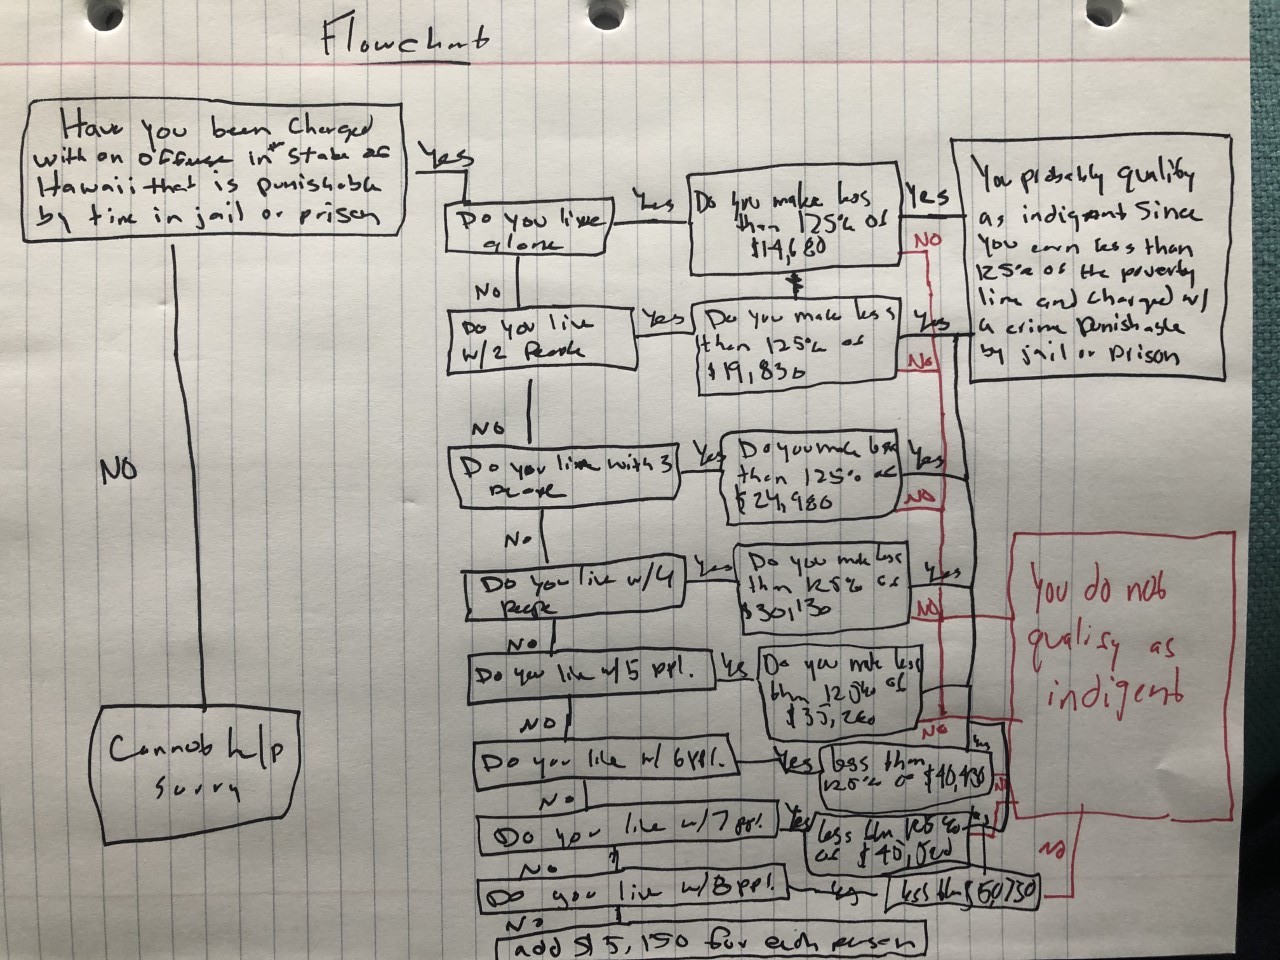 Flowchart
Have you been charged
with an offense in the State of
Hawaii that is punishable
by time in jail or prison
Yes
Do you live
alone
Yes
Do you make less
than 125% of
$14,680
Yes
NO
You probably qualify
as indigent Since
you earn less than
125% of the poverty
line and charged w/
a crime punishable
by jail or prison
NO
Do you live
w/2 People
Yes
Do you make less
than 125% of
$19,830
Yes
No
NO
NO
Do you live with 3
people
Yes
Do you make less
than 125% of
$24,980
Yes
NO
No
Do you live w/4
people
Yes
Do you make less
than 125% of
$30,130
Yes
NO
You do not
qualify as
indigent
NO
Do you live w/5 ppl.
Yes
Do you make less
than 125% of
NO
NO
Cannot help
sorry
Do you live w/ 6 ppl.
Yes
less than
125% of $40,430
Yes
No
NO
Do you live w/7 ppl.
Yes
less than 125%
of
Yes
NO
NO
Do you live w/8 ppl.
Yes
less than 50,730
NO
add $5,150 for each person